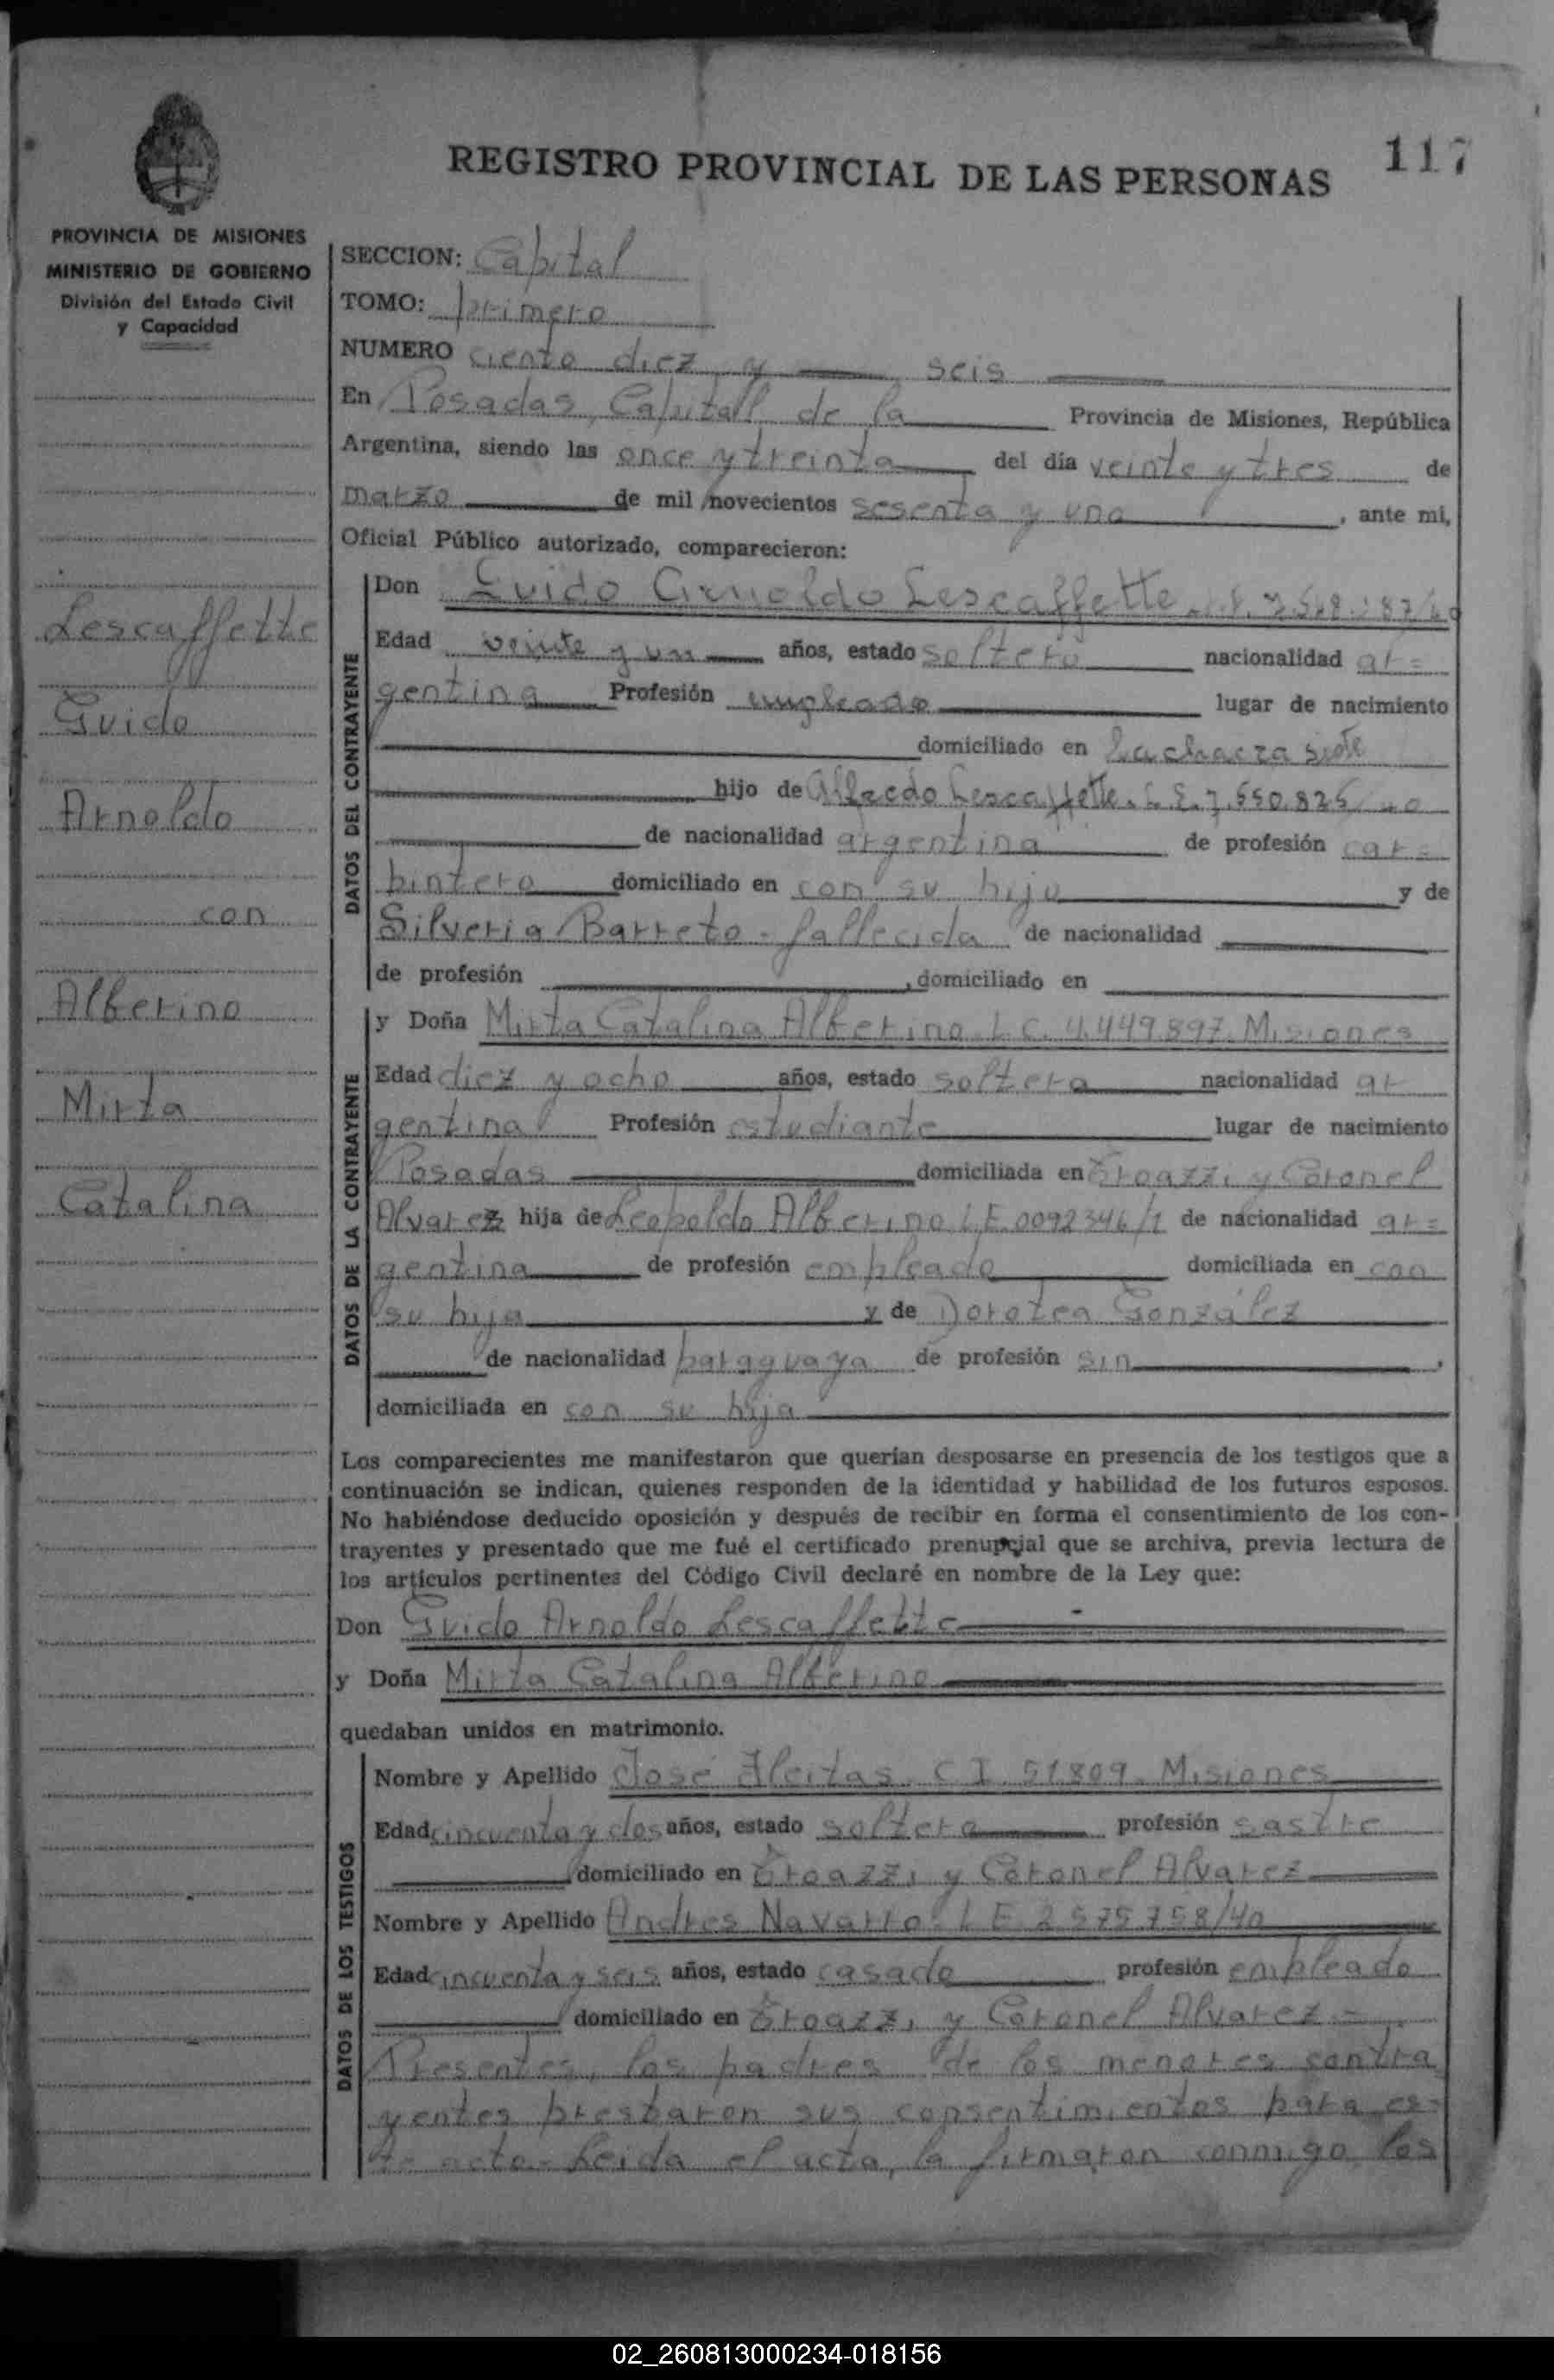 117
REGISTRO PROVINCIAL DE LAS PERSONAS
PROVINCIA DE MISIONES
MINISTERIO DE GOBIERNO
División del Estado Civil
y Capacidad
Lescaffette
Guido
Arnoldo
con
Alberino
Mirta
Catalina
SECCION: Capital
TOMO: primero
NUMERO ciento diez y seis
En Posadas, Capital de la Provincia de Misiones, República
Argentina, siendo las once y treinta del día veinte y tres de
marzo de mil novecientos sesenta y uno, ante mi,
Oficial Público autorizado, comparecieron:
DATOS DEL CONTRAYENTE
Don Guido Arnoldo Lescaffette
Edad veinte y un años, estado soltero nacionalidad ar=
gentina Profesión empleado lugar de nacimiento
domiciliado en La chacra siete
hijo de Alfredo Lescaffette. L.E.
de nacionalidad argentina de profesión car=
pintero domiciliado en con su hijo y de
Silveria Barreto - fallecida de nacionalidad
de profesión , domiciliado en
DATOS DE LA CONTRAYENTE
y Doña Mirta Catalina Alberino L.C. 4.449.897. Misiones
Edad diez y ocho años, estado soltera nacionalidad ar
gentina Profesión estudiante lugar de nacimiento
Posadas domiciliada en Eroazzi y Coronel
Alvarez hija de Leopoldo Alberino L.E. 0092346/1 de nacionalidad ar=
gentina de profesión empleado domiciliada en con
su hija y de Dorotea González
de nacionalidad paraguaya de profesión sin ,
domiciliada en con su hija
Los comparecientes me manifestarón que querían desposarse en presencia de los testigos que a
continuación se indican, quienes responden de la identidad y habilidad de los futuros esposos.
No habiéndose deducido oposición y después de recibir en forma el consentimiento de los con-
trayentes y presentado que me fué el certificado prenupcial que se archiva, previa lectura de
los artículos pertinentes del Código Civil declaré en nombre de la Ley que:
Don Guido Arnoldo Lescaffette
y Doña Mirta Catalina Alberino
quedaban unidos en matrimonio.
DATOS DE LOS TESTIGOS
Nombre y Apellido José Fleitas. C.I. 51.809. Misiones
Edad cincuenta y dos años, estado soltero profesión sastre
domiciliado en Eroazzi y Coronel Alvarez
Nombre y Apellido Andres Navarro. L.E. 2575758/40
Edad cincuenta y seis años, estado casado profesión empleado
domiciliado en Eroazzi y Coronel Alvarez -
Presentes, los padres de los menores contra
yentes prestaron sus consentimientos para es-
te acto.- Leida el acta, la firmaron conmigo los
02_260813000234-018156